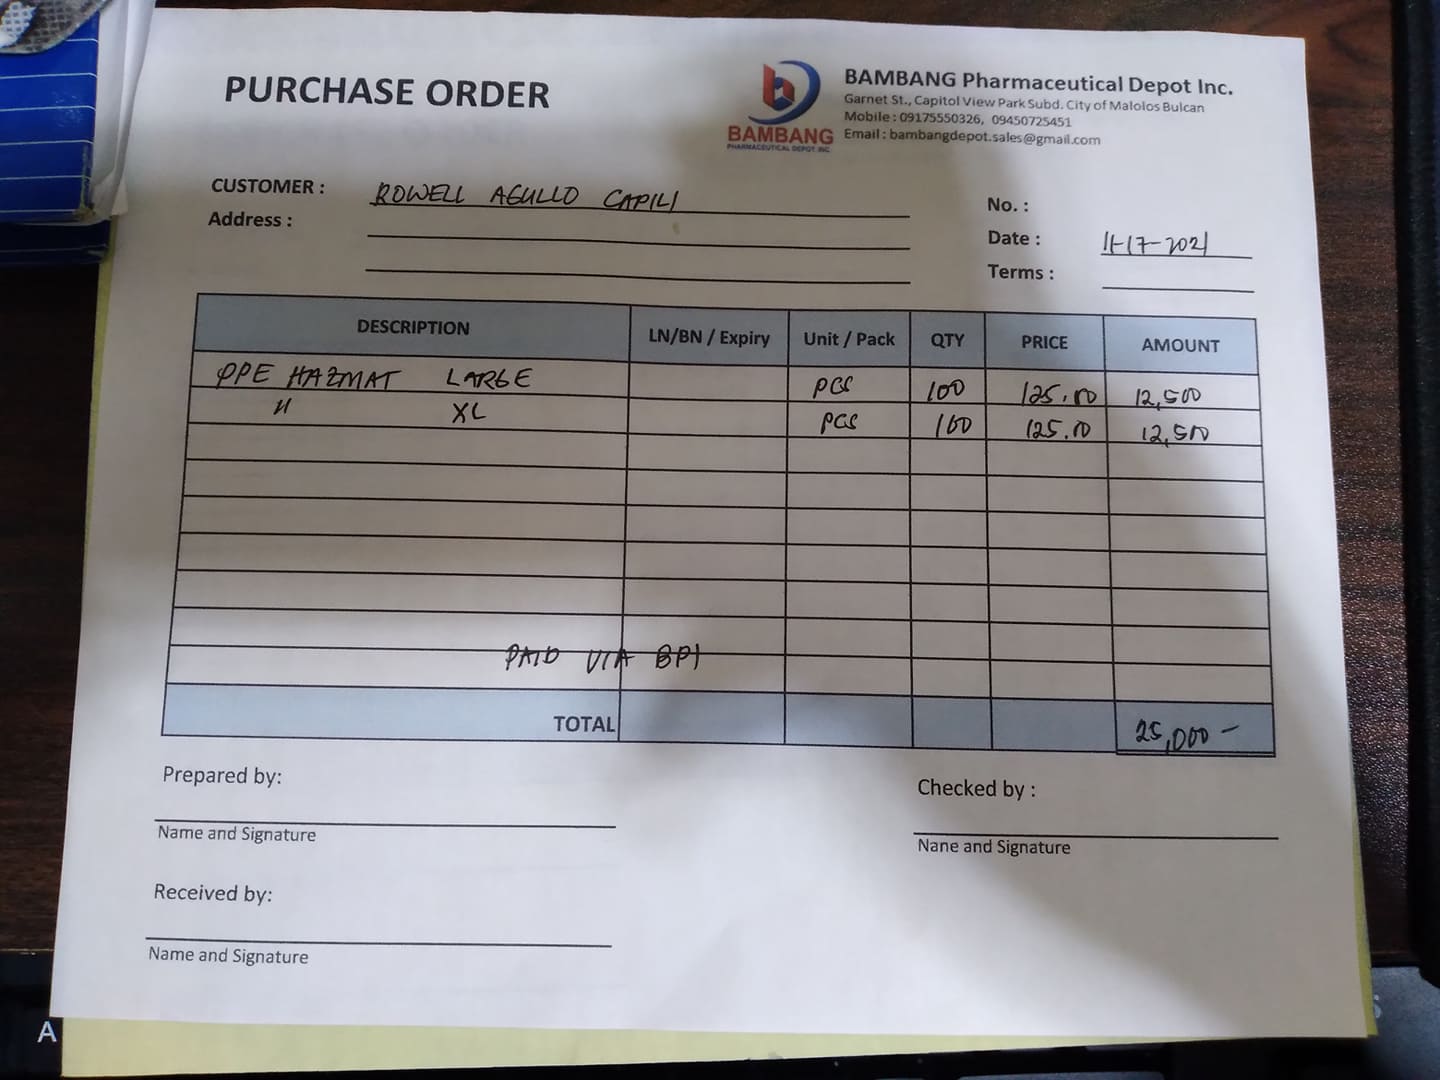 PURCHASE ORDER
BAMBANG
PHARMACEUTICAL DEPOT INC.
BAMBANG Pharmaceutical Depot Inc.
Garnet St., Capitol View Park Subd. City of Malolos Bulcan
Mobile : 09175550326, 09450725451
Email : bambangdepot.sales@gmail.com
CUSTOMER : ROWELL AGULLO CAPILI
Address :
No. :
Date : 11-17-2021
Terms :
DESCRIPTION LN/BN / Expiry Unit / Pack QTY PRICE AMOUNT
PPE HAZMAT LARGE PCS 100 125.00 12,500
" XL PCS 100 125.00 12,500
PAID VIA BPI
TOTAL 25,000 -
Prepared by:
Name and Signature
Checked by :
Nane and Signature
Received by:
Name and Signature
A